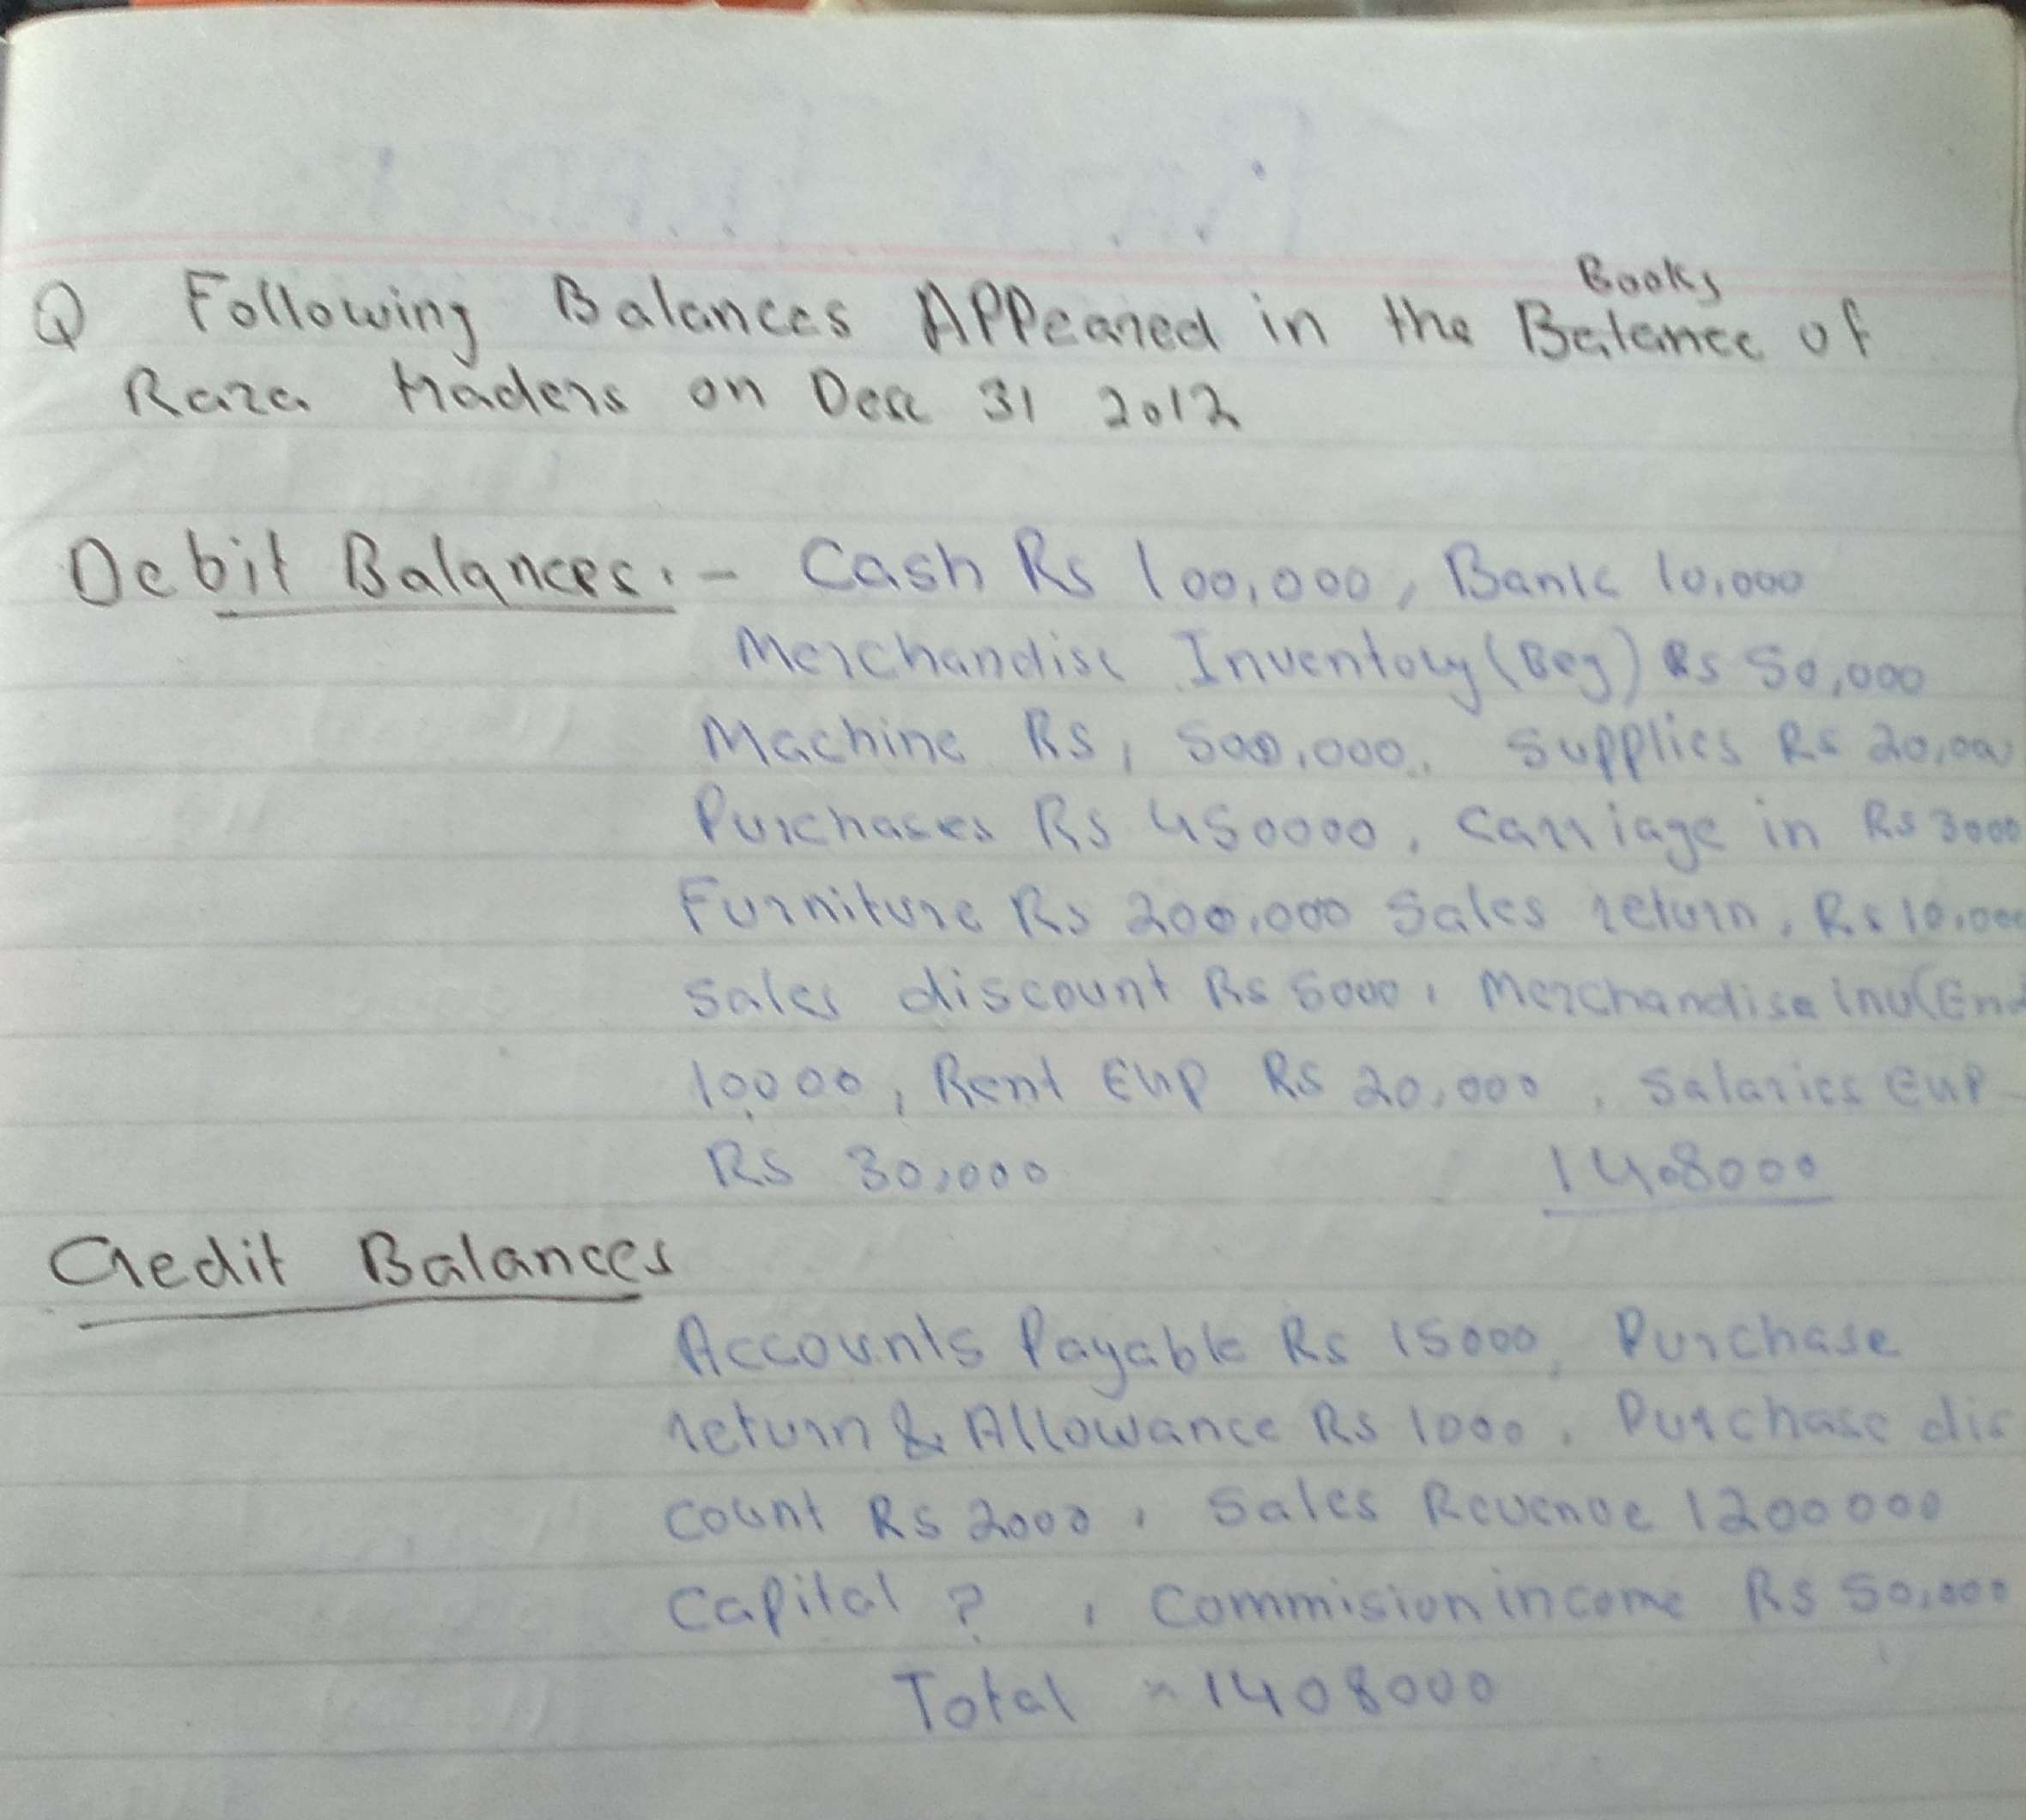 Books
Q Following Balances APPeared in the Balance of
Raza traders on Dec 31 2012
Debit Balances:- Cash Rs 100,000, Bank 10,000
Merchandise Inventory (Beg) Rs 50,000
Machine Rs, 500,000, Supplies Rs 20,000
Purchases Rs 450000, Carriage in Rs 3000
Furniture Rs 200,000 Sales return, Rs 10,000
Sales discount Rs 5000, Merchandise Inv(End
10000, Rent Exp Rs 20,000, Salaries Exp
Rs 30,000 1408000
Credit Balances
Accounts Payable Rs 15000, Purchase
return & Allowance Rs 1000, Purchase dis
count Rs 2000, Sales Revenue 1200000
Capital ?, Commision income Rs 50,000
Total = 1408000